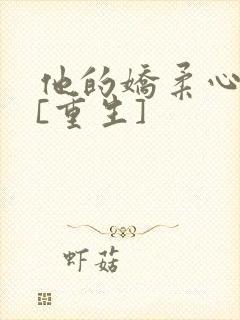 他的娇柔心
[重生]
虾菇